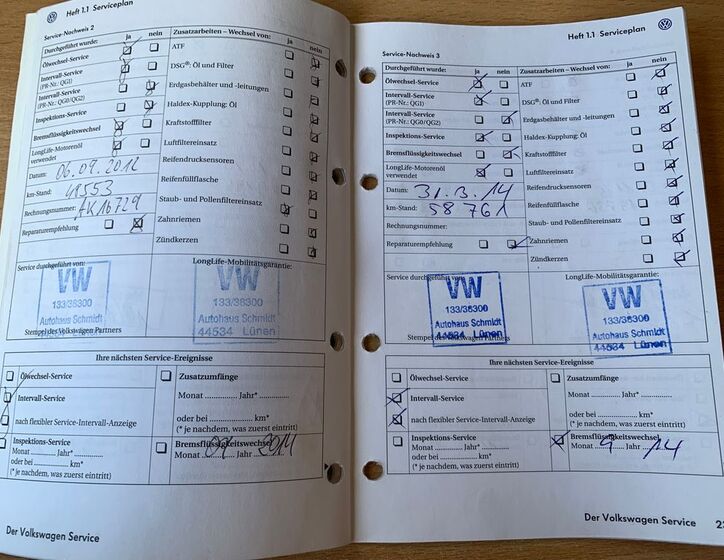 Heft 1.1 Serviceplan
Service-Nachweis 2
Durchgeführt wurde: ja nein
Ölwechsel-Service
Intervall-Service
(PR-Nr.: QG1)
Intervall-Service
(PR-Nr.: QG0/QG2)
Inspektions-Service
Bremsflüssigkeitswechsel
LongLife-Motorenöl
verwendet
Datum: 06.09.2012
km-Stand: 41553
Rechnungsnummer: AK16729
Reparaturempfehlung
Zusatzarbeiten – Wechsel von: ja nein
ATF
DSG®: Öl und Filter
Erdgasbehälter und -leitungen
Haldex-Kupplung: Öl
Kraftstofffilter
Luftfiltereinsatz
Reifendrucksensoren
Reifenfüllflasche
Staub- und Pollenfiltereinsatz
Zahnriemen
Zündkerzen
Service durchgeführt von:
VW
133/36300
Autohaus Schmidt
44534 Lünen
Stempel des Volkswagen Partners
LongLife-Mobilitätsgarantie:
VW
133/36300
Autohaus Schmidt
44534 Lünen
Ihre nächsten Service-Ereignisse
Ölwechsel-Service
Intervall-Service
nach flexibler Service-Intervall-Anzeige
Inspektions-Service
Monat ........... Jahr* ...........
oder bei ........... km*
(* je nachdem, was zuerst eintritt)
Zusatzumfänge
Monat ........... Jahr* ...........
oder bei ........... km*
(* je nachdem, was zuerst eintritt)
Bremsflüssigkeitswechsel
Monat 09 Jahr 2014
Der Volkswagen Service
Heft 1.1 Serviceplan
Service-Nachweis 3
Durchgeführt wurde: ja nein
Ölwechsel-Service
Intervall-Service
(PR-Nr.: QG1)
Intervall-Service
(PR-Nr.: QG0/QG2)
Inspektions-Service
Bremsflüssigkeitswechsel
LongLife-Motorenöl
verwendet
Datum: 31.3.14
km-Stand: 58761
Rechnungsnummer:
Reparaturempfehlung
Zusatzarbeiten – Wechsel von: ja nein
ATF
DSG®: Öl und Filter
Erdgasbehälter und -leitungen
Haldex-Kupplung: Öl
Kraftstofffilter
Luftfiltereinsatz
Reifendrucksensoren
Reifenfüllflasche
Staub- und Pollenfiltereinsatz
Zahnriemen
Zündkerzen
Service durchgeführt von:
VW
133/36300
Autohaus Schmidt
44534 Lünen
Stempel des Volkswagen Partners
LongLife-Mobilitätsgarantie:
VW
133/36300
Autohaus Schmidt
44534 Lünen
Ihre nächsten Service-Ereignisse
Ölwechsel-Service
Intervall-Service
nach flexibler Service-Intervall-Anzeige
Inspektions-Service
Monat ........... Jahr* ...........
oder bei ........... km*
(* je nachdem, was zuerst eintritt)
Zusatzumfänge
Monat ........... Jahr* ...........
oder bei ........... km*
(* je nachdem, was zuerst eintritt)
Bremsflüssigkeitswechsel
Monat 9 Jahr 14
Der Volkswagen Service